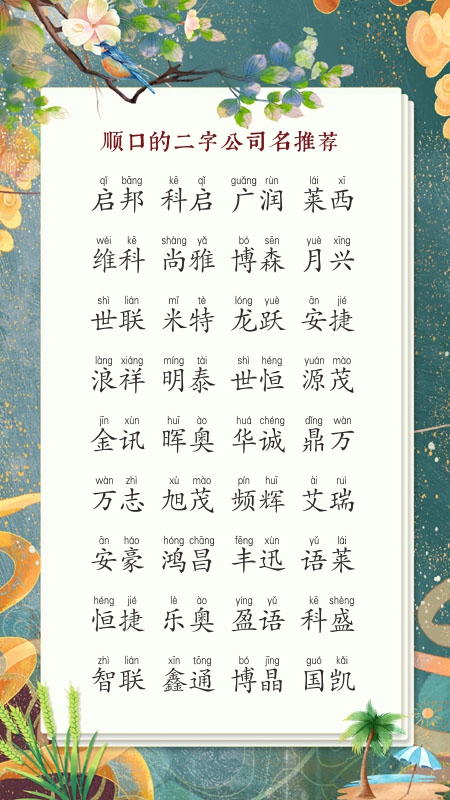 顺口的二字公司名推荐
qǐ bāng kē qǐ guǎng rùn lái xī
启邦 科启 广润 莱西
wéi kē shàng yǎ bó sēn yuè xīng
维科 尚雅 博森 月兴
shì lián mǐ tè lóng yuè ān jié
世联 米特 龙跃 安捷
làng xiáng míng tài shì héng yuán mào
浪祥 明泰 世恒 源茂
jīn xùn huī ào huá chéng dǐng wàn
金讯 晖奥 华诚 鼎万
wàn zhì xù mào pín huī ài ruì
万志 旭茂 频辉 艾瑞
ān háo hóng chāng fēng xùn yǔ lái
安豪 鸿昌 丰迅 语莱
héng jié lè ào yíng yǔ kē shèng
恒捷 乐奥 盈语 科盛
zhì lián xīn tōng bó jīng guó kǎi
智联 鑫通 博晶 国凯